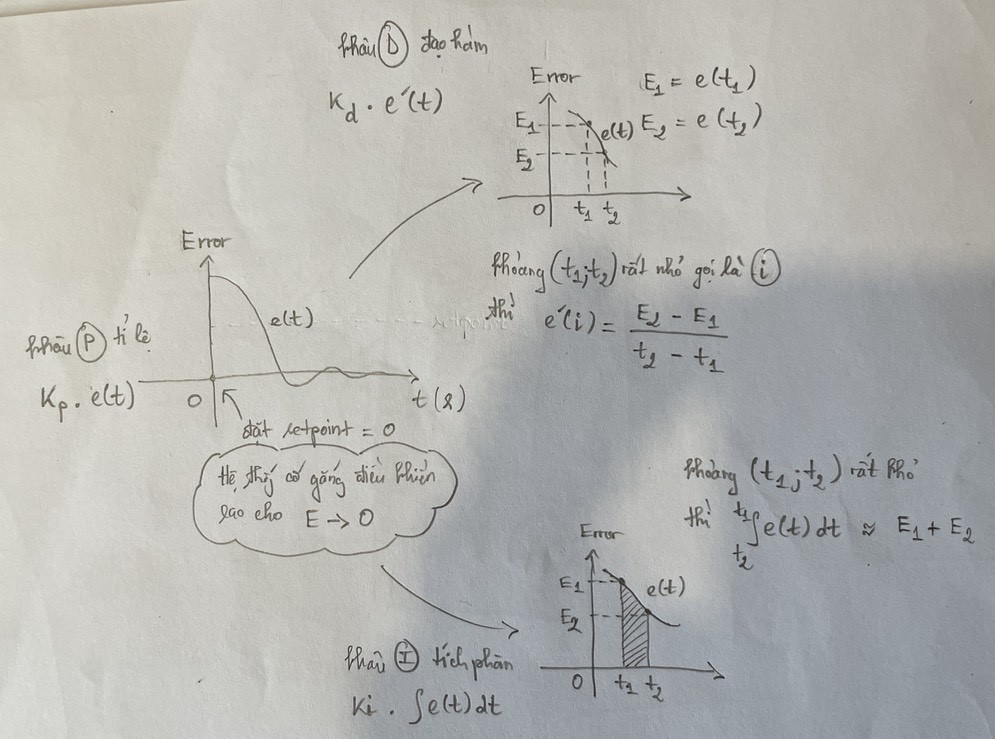 khâu D đạo hàm
Kd . e'(t)
Error
E1 = e(t1)
E2 = e(t2)
E1
E2
e(t)
0
t1 t2
khoảng (t1;t2) rất nhỏ gọi là i
thì e'(i) = (E2 - E1) / (t2 - t1)
Error
e(t)
setpoint
khâu P tỉ lệ
Kp . e(t)
0
t (s)
đặt setpoint = 0
Hệ thống cố gắng điều khiển
sao cho E → 0
khoảng (t1;t2) rất nhỏ
thì t1∫t2 e(t) dt ≈ E1 + E2
Error
E1
E2
e(t)
0
t1 t2
khâu I tích phân
Ki . ∫e(t) dt